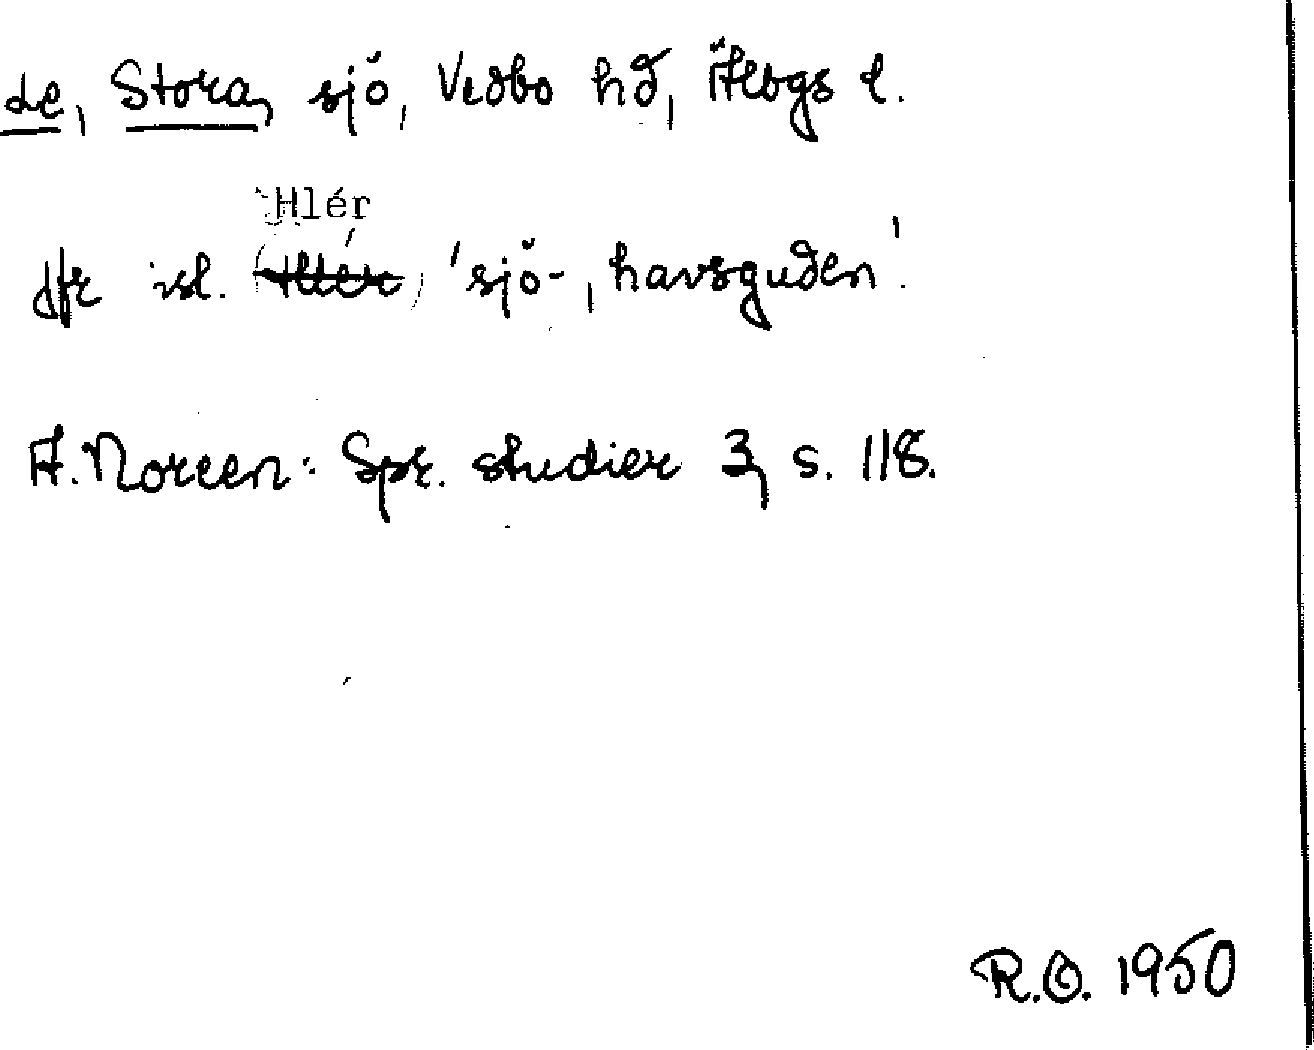 de, Stora, sjö, Vedbo hd, Älvbgs l.
Hlér
Jfr isl. Hlér, 'sjö-, havsguden'.
A. Noreen: Spr. studier 3, s. 118.
R.O. 1950